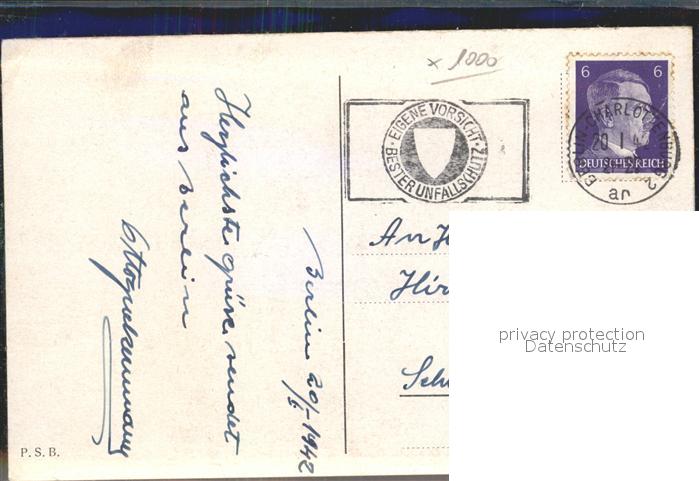 x 1000
6 6
DEUTSCHES REICH
BERLIN-CHARLOTTENBURG 2
20.1.42
ar
EIGENE VORSICHT · BESTER UNFALLSCHUTZ!
Berlin 20/I 1942
Herzlichste Grüsse sendet
aus Berlin
An
Hir
Sch
P. S. B.
privacy protection
Datenschutz